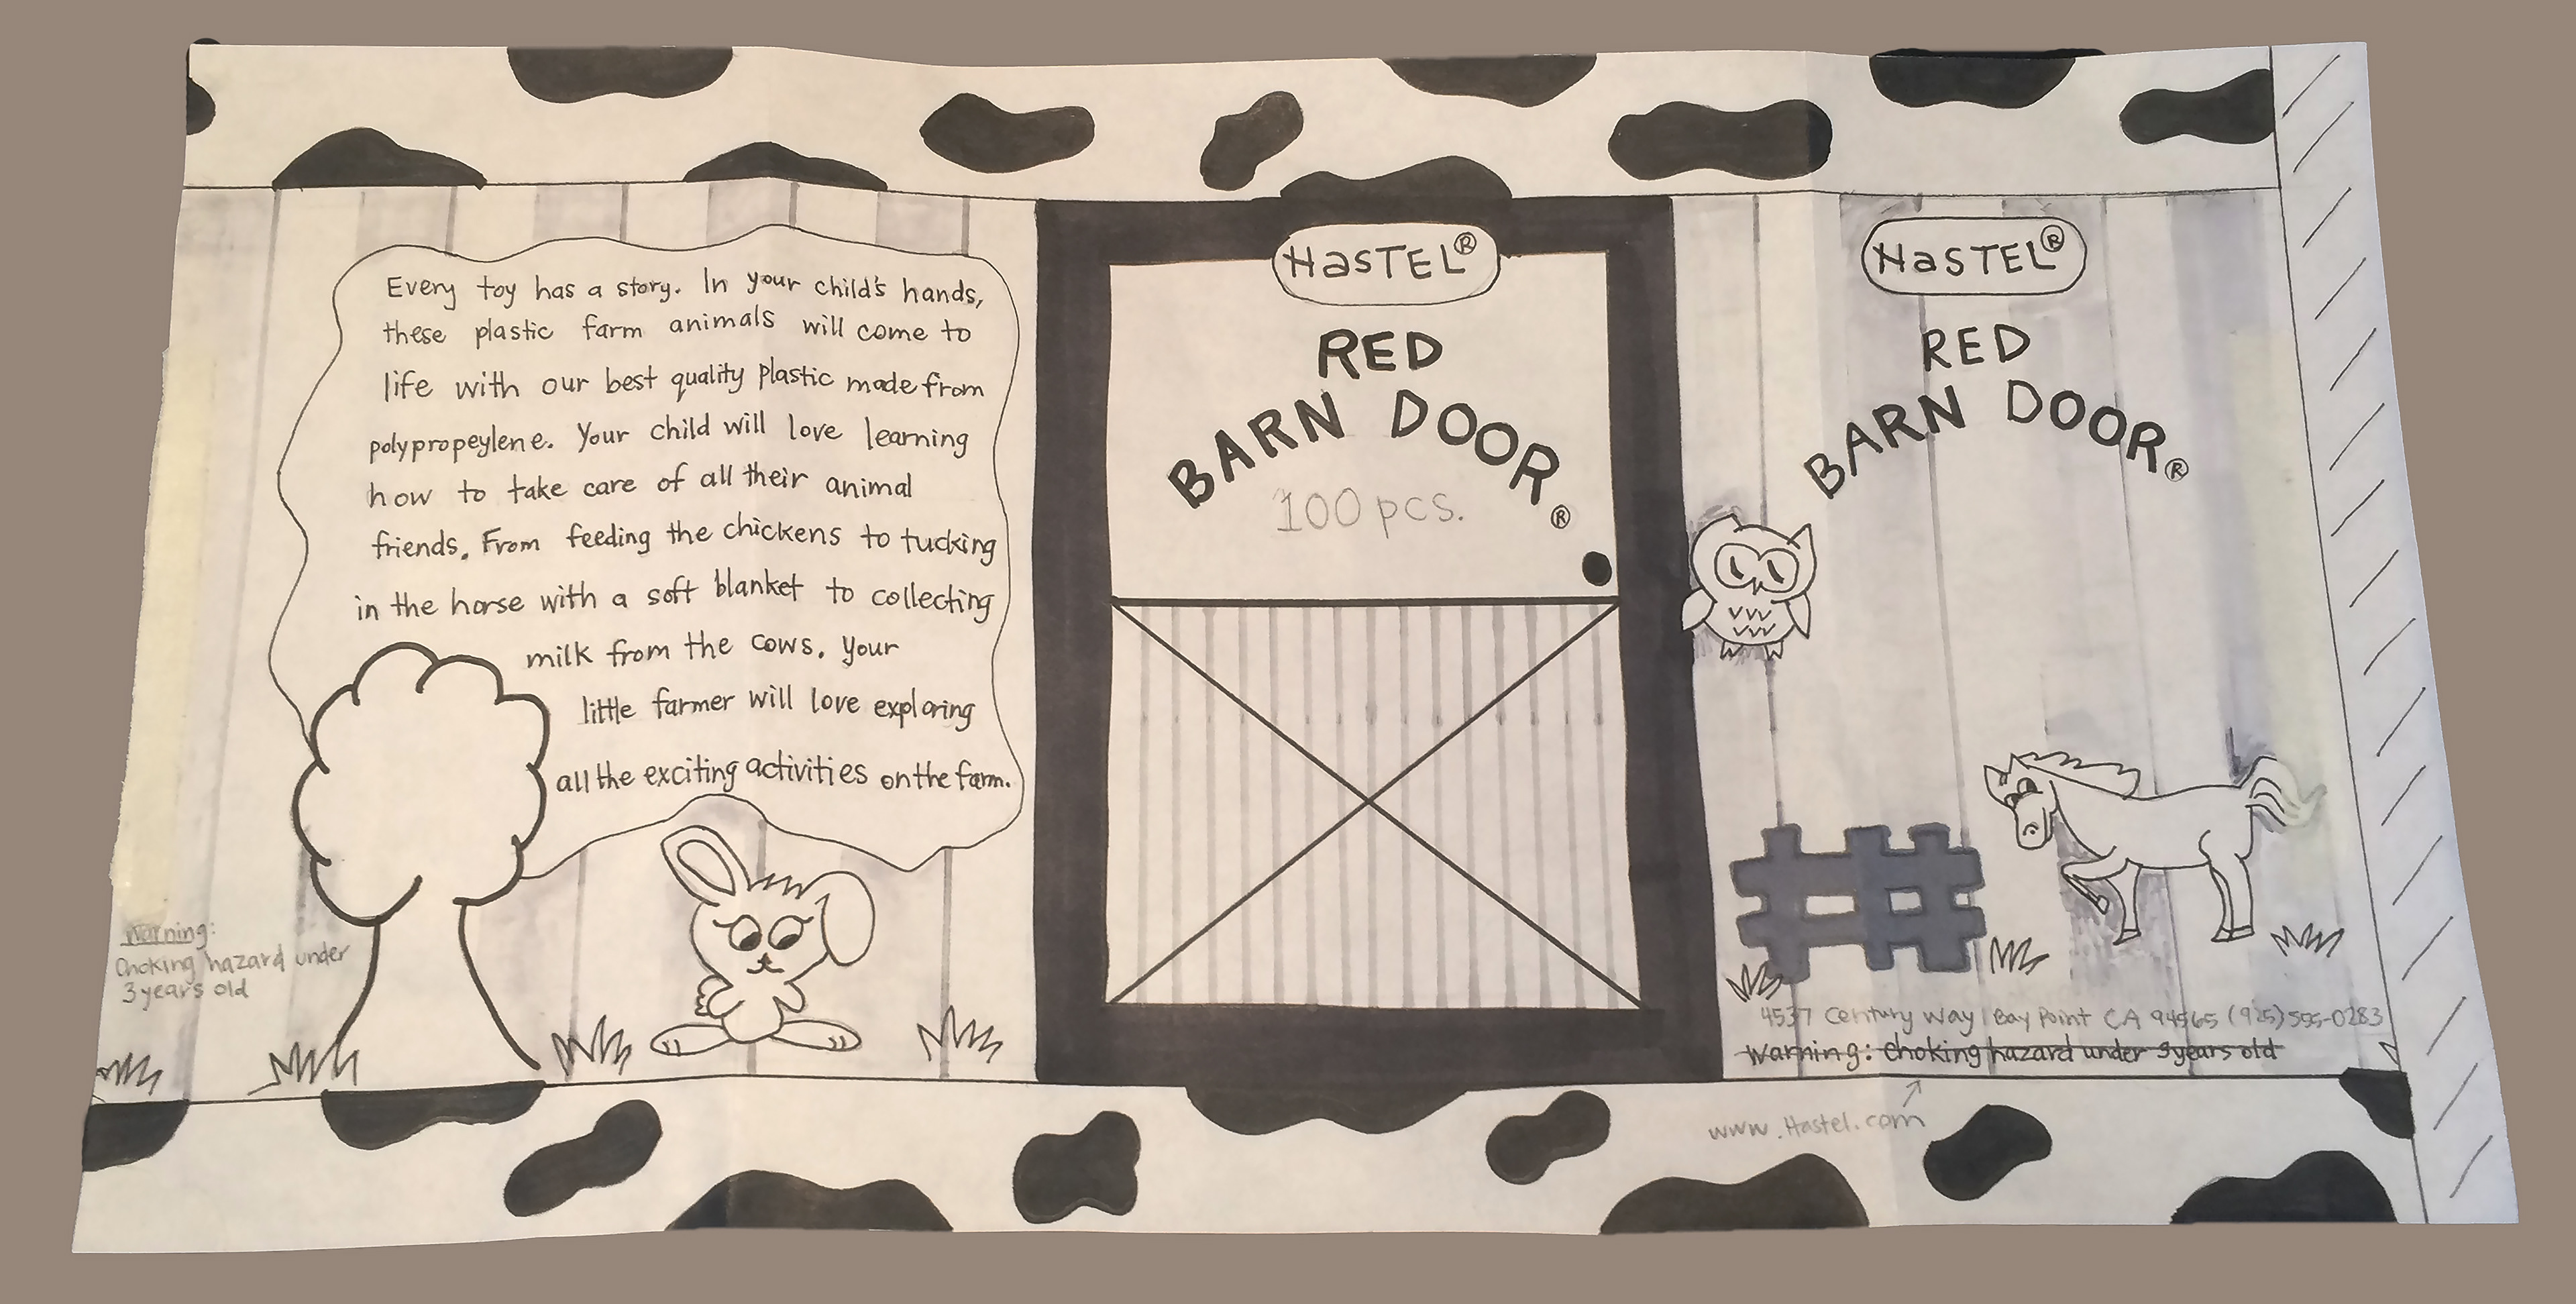 Every toy has a story. In your child's hands,
these plastic farm animals will come to
life with our best quality plastic made from
polypropeylene. Your child will love learning
how to take care of all their animal
friends. From feeding the chickens to tucking
in the horse with a soft blanket to collecting
milk from the cows. Your
little farmer will love exploring
all the exciting activities on the farm.
Warning:
Choking hazard under
3 years old
HasTEL®
RED
BARN DOOR®
100 pcs.
HasTEL®
RED
BARN DOOR®
4537 Century Way Bay Point CA 94565 (925) 555-0283
Warning: Choking hazard under 3 years old
www.Hastel.com